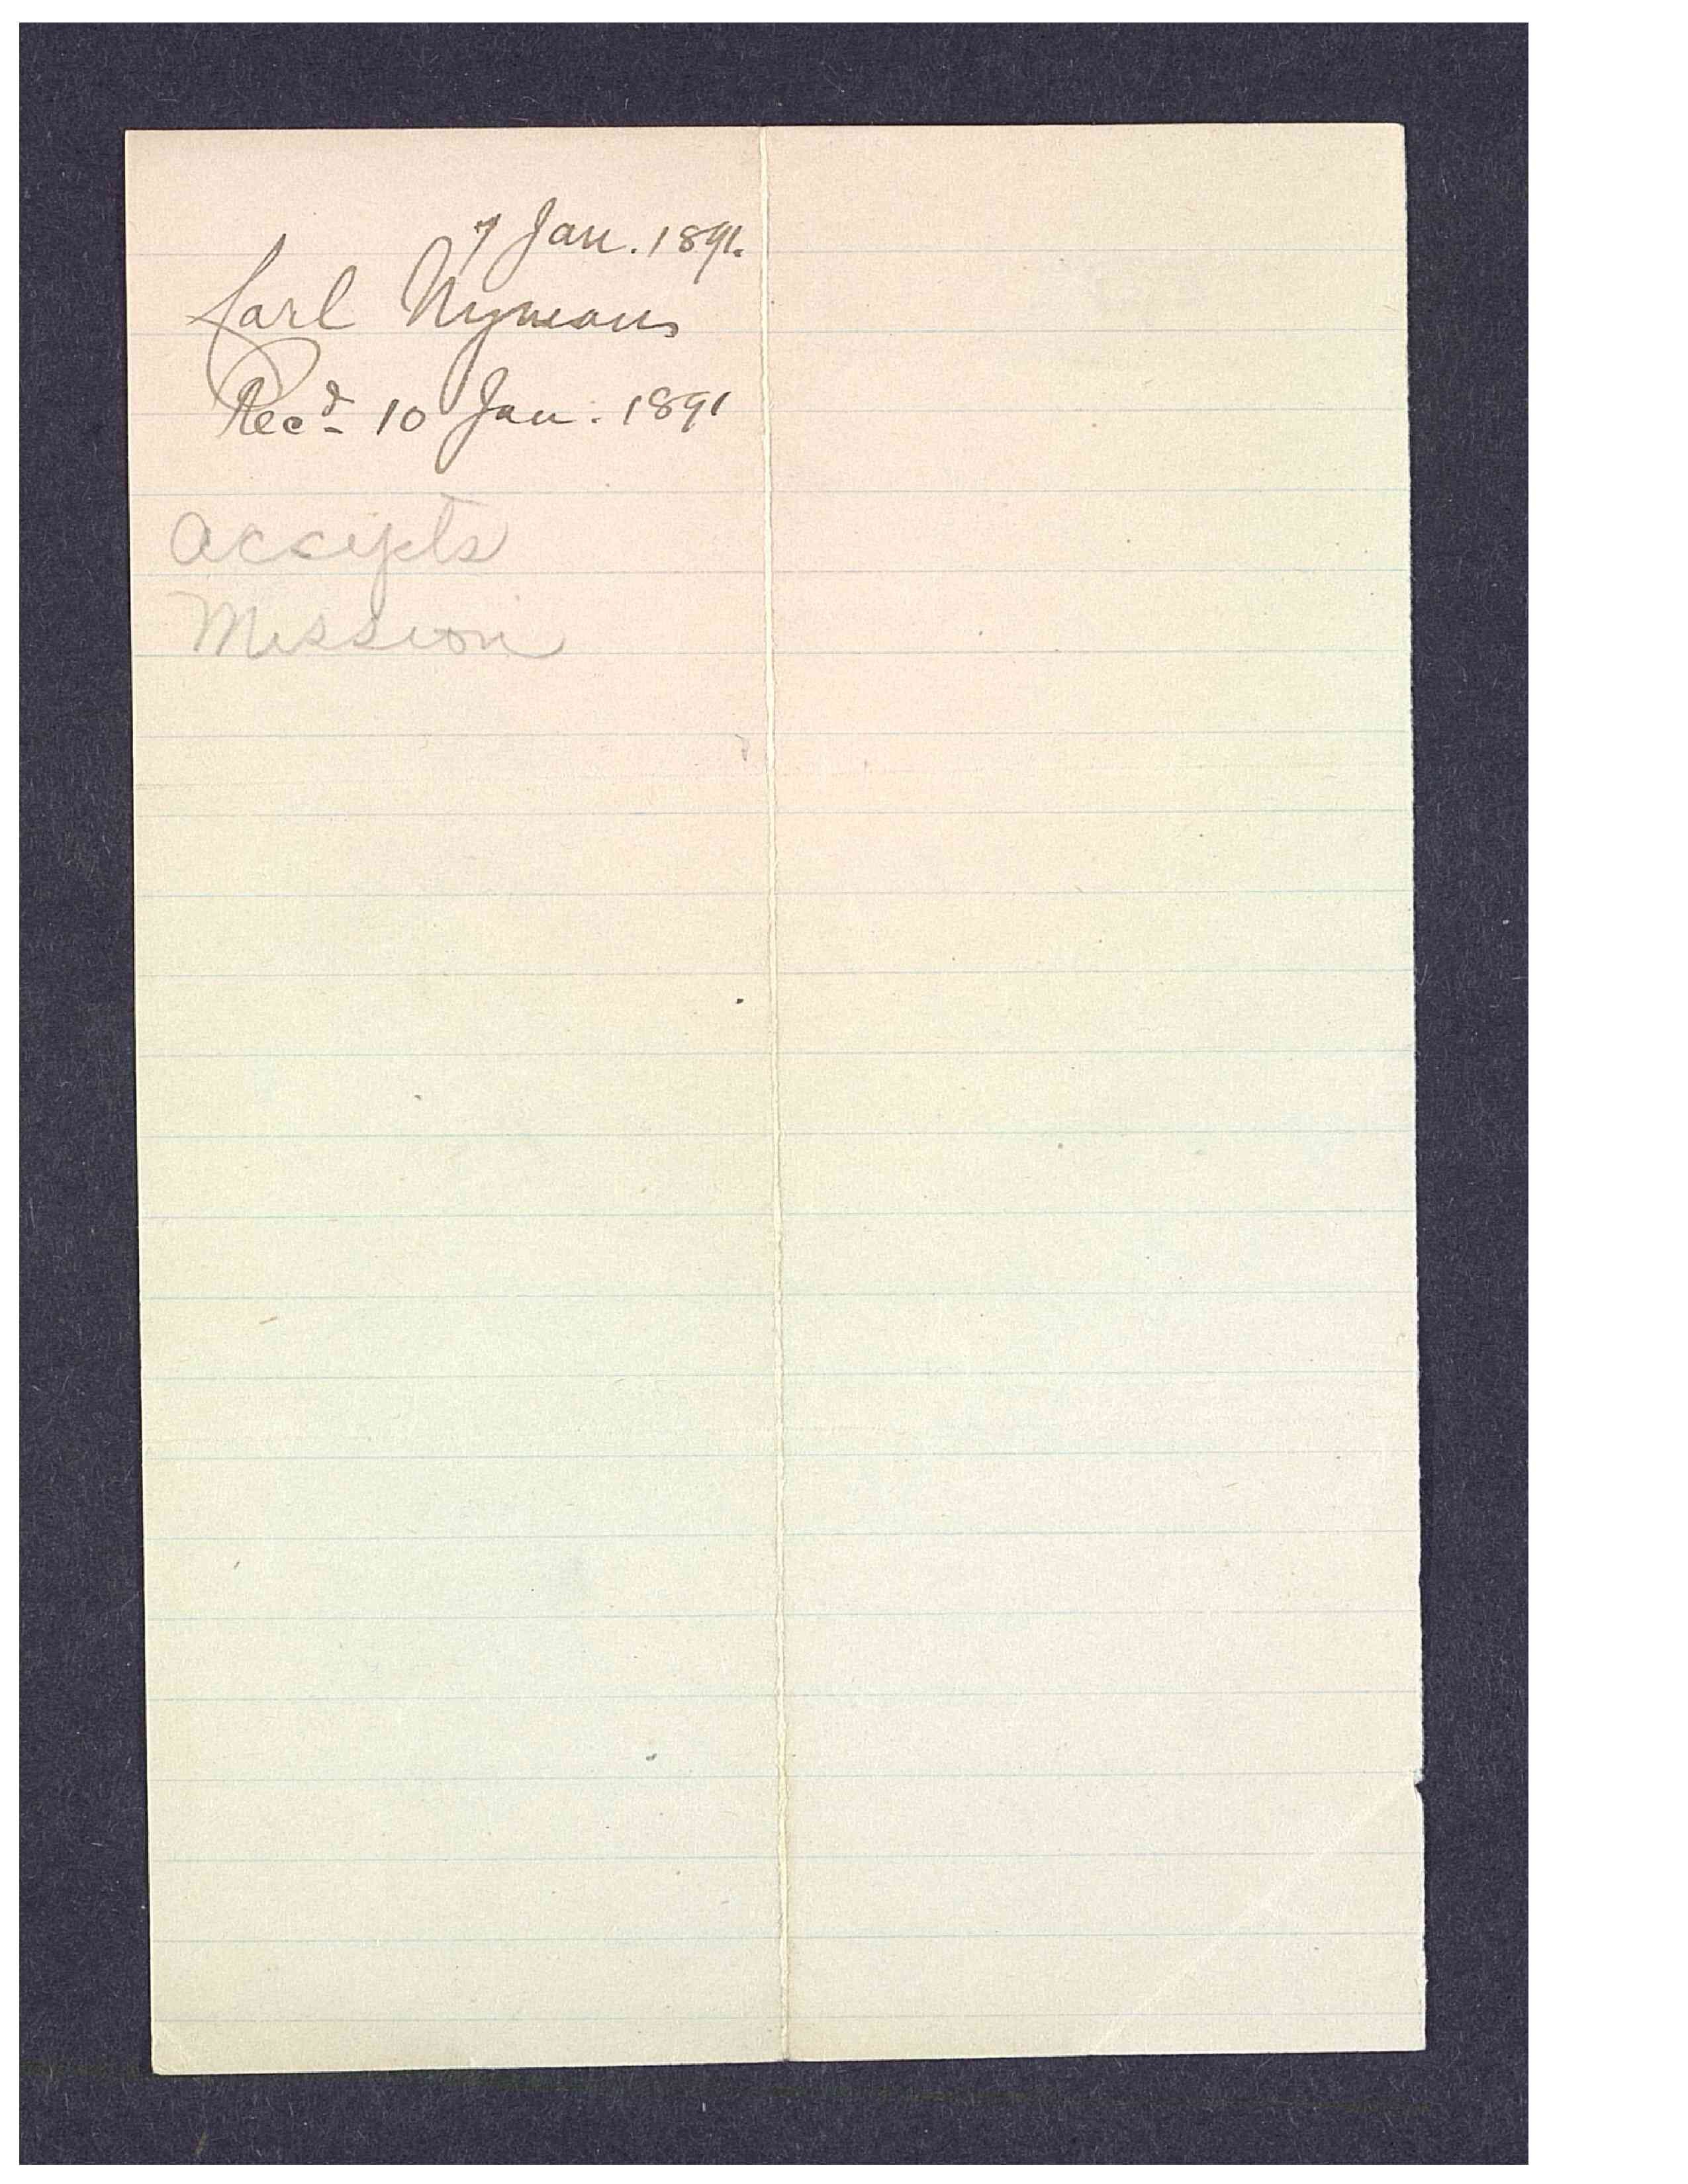 7 Jan. 1891.
Carl Nyman
Recd 10 Jan. 1891
accepts
Mission